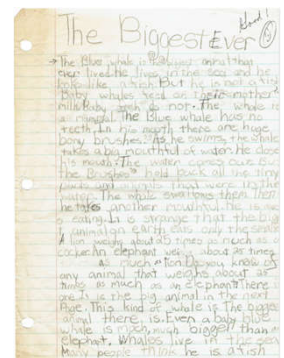 Good!
The Biggest Ever
→ The Blue whale is the animal that
ever lived. He lives in the sea and he
looks like a fish. But he is not a fish
Baby whales feed on their mother's
milk. Baby fish do not. The whale is
a mammal. The Blue whale has no
teeth. In his mouth there are huge
bony brushes. As he swims, the whale
takes a big mouthful of water. He closes
his mouth. The water comes out. But
the brushes hold back all the tiny
plants and animals that were in the
water. The whale swallows them. Then
he takes another mouthful. He is
eating. It is strange that the big
animal on earth eats only the small
A lion weighs about times as much as a
cocker. An elephant weighs about times
as much as a lion. Do you know of
any animal that weighs about
times as much as an elephant? There
one. It is the big animal in the next
page. This kind of whale is the bigges
animal there is. Even a baby blue
whale is much, much bigger than an
elephant. Whales live in the sea
Many people think he is a fish.